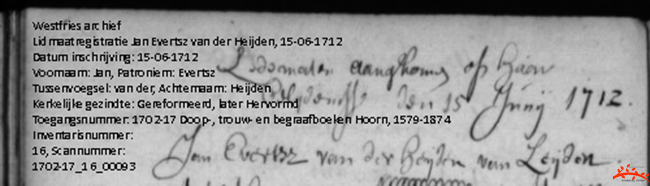 Westfries archief
Lidmaatregistratie Jan Evertsz van der Heijden, 15-06-1712
Datum inschrijving: 15-06-1712
Voornaam: Jan, Patroniem: Evertsz
Tussenvoegsel: van der, Achternaam: Heijden
Kerkelijke gezindte: Gereformeerd, later Hervormd
Toegangsnummer: 1702-17 Doop-, trouw- en begraafboeken Hoorn, 1579-1874
Inventarisnummer:
16, Scannummer:
1702-17_16_00093
Ledematen aangekomen op haar
den 15 Junij 1712.
Jan Evertsz van der Heijden van Leijden